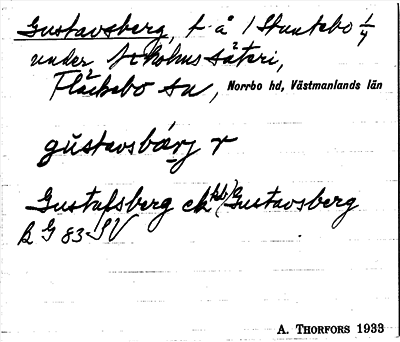 Gustavsberg, t. å 1 Stuntebo 1/4
under Ekholms säteri,
Fläckebo sn, Norrbo hd, Västmanlands län
gustavsbærj
Gustafsberg ek bl/Gustavsberg
B G 83 SV
A. THORFORS 1933